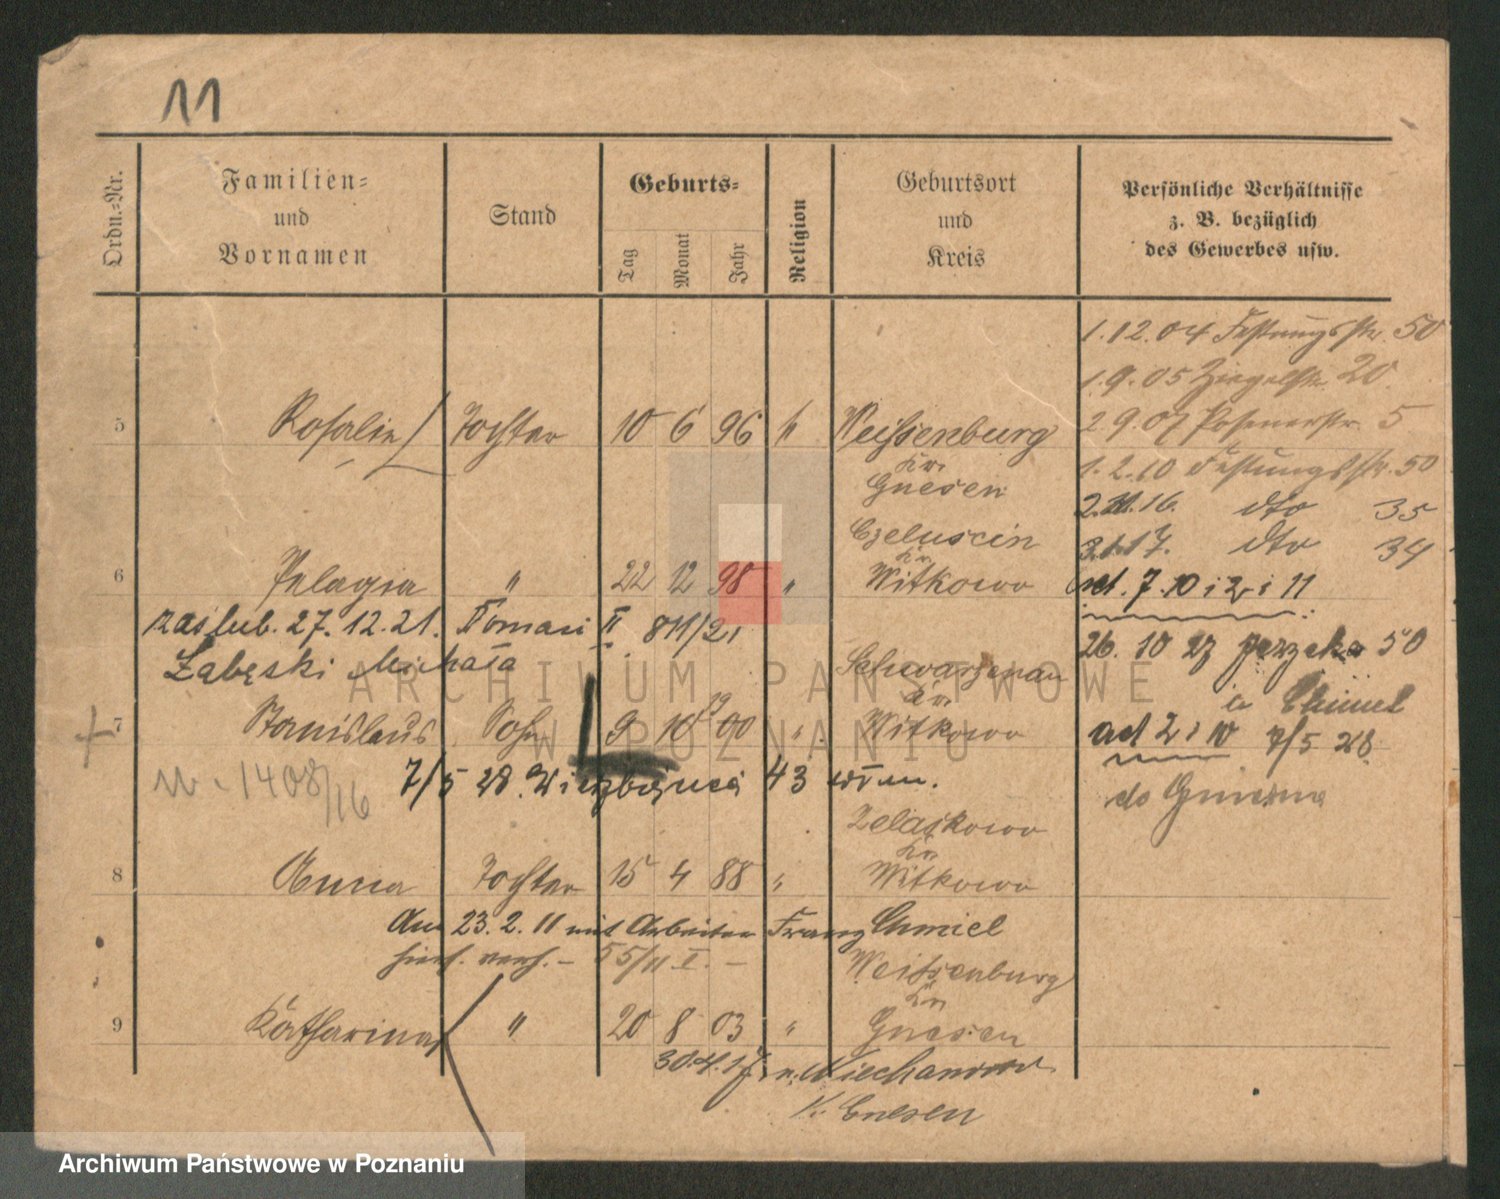 11
Ordn.-Nr.
Familien-
und
Vornamen
Stand
Geburts-
Tag
Monat
Jahr
Religion
Geburtsort
und
Kreis
Persönliche Verhältnisse
z. B. bezüglich
des Gewerbes usw.
1.12.04 Festungsstr. 50
1.9.05 Ziegelstr. 20
2.9.07 Posenerstr. 5
1.2.10 Festungsstr. 50
2.11.16. dto 35
3.1.17. dto 34
act. 7.10 i 2 i 11
26. 10 27 50
Chmiel
act 2 i 10 7/5 28
do Gniezna
5 Rosalie Tochter 10 6 96 k Weissenburg
Kr.
Gnesen
Czeluscin
Kr.
6 Pelagia " 22 12 98 " Witkowo
zaslub. 27. 12. 21. II 811/21
Zabęski Michała
Schwarzenau
Kr.
7 Stanislaus Sohn 9 10 00 " Witkowo
1408/16
7/5 28. Wierzbięcice 43
Zelaskowo
Kr.
8 Anna Tochter 15 4 88 " Witkowo
Am 23. 2. 11 mit Arbeiter Franz Chmiel
hier verh. – 55/11 II. –
Weissenburg
Kr.
9 Katharina " 20 8 03 " Gnesen
30.4.17 n. Niechanowo
K. Gnesen
ARCHIWUM PAŃSTWOWE
W POZNANIU
Archiwum Państwowe w Poznaniu